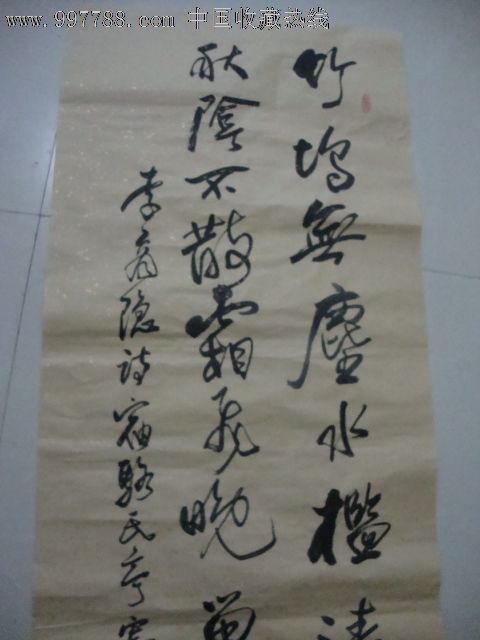 www.997788.com 中国收藏热线
竹坞無塵水檻清
秋陰不散霜飛晚 留
李商隐诗宿駱氏亭寄